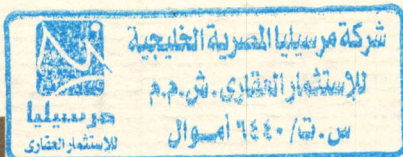 شركة مرسيليا المصرية الخليجية
للإستثمار العقارى.ش.م.م
س.ت/٦٤٤٠ أموال
مرسيليا
للاستثمار العقارى